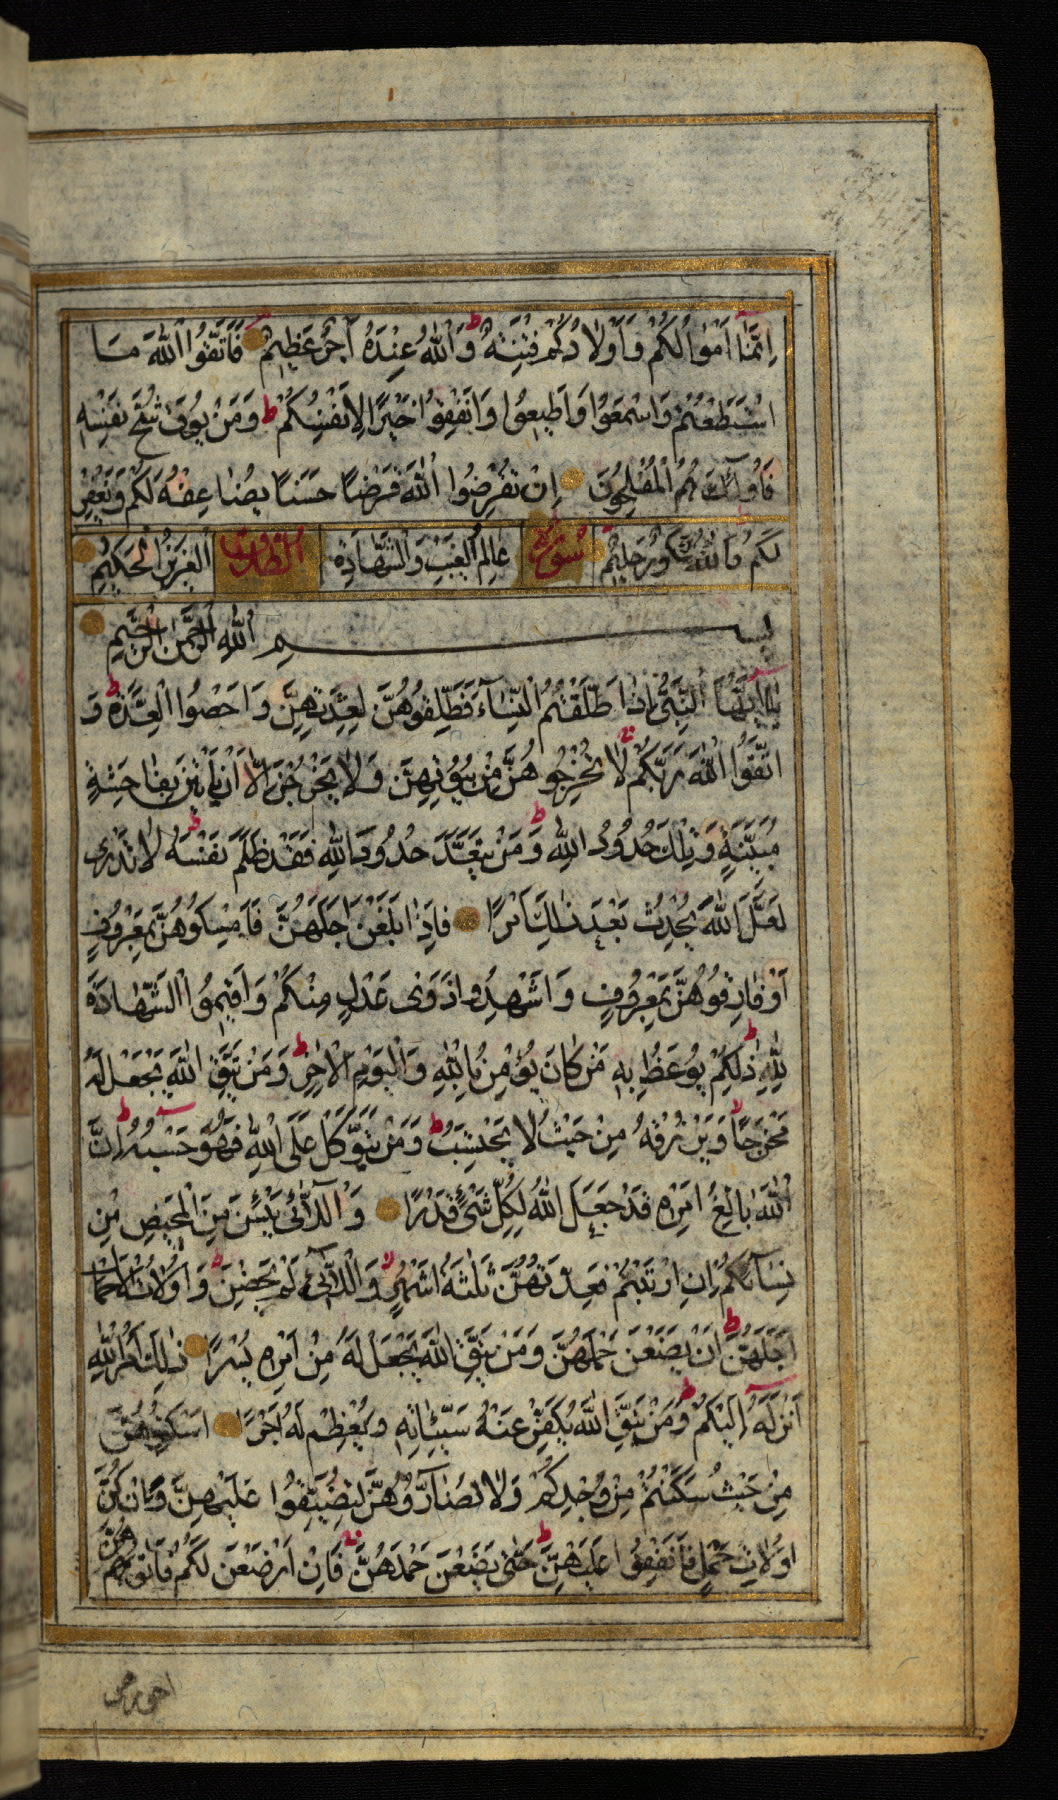 اِنَّمٰا اَمْوٰالُكُمْ وَاَوْلٰادُكُمْ فِتْنَةٌ ط وَاللّٰهُ عِنْدَهُ اَجْرٌ عَظِيمٌ فَاتَّقُوا اللّٰهَ مَا
اسْتَطَعْتُمْ وَاسْمَعُوا وَاَطِيعُوا وَاَنْفِقُوا خَيْرًا لِاَنْفُسِكُمْ ط وَمَنْ يُوقَ شُحَّ نَفْسِهِ
فَاُولٰئِكَ هُمُ الْمُفْلِحُونَ اِنْ تُقْرِضُوا اللّٰهَ قَرْضًا حَسَنًا يُضٰاعِفْهُ لَكُمْ وَيَغْفِرْ
لَكُمْ وَاللّٰهُ شَكُورٌ حَلِيمٌ سُورَةُ عَالِمُ الْغَيْبِ وَالشَّهَادَةِ الطلاق الْعَزِيزُ الْحَكِيمُ
بِسْمِ اللّٰهِ الرَّحْمٰنِ الرَّحِيمِ
يٰا اَيُّهَا النَّبِيُّ اِذٰا طَلَّقْتُمُ النِّسٰاءَ فَطَلِّقُوهُنَّ لِعِدَّتِهِنَّ وَاَحْصُوا الْعِدَّةَ ط وَ
اتَّقُوا اللّٰهَ رَبَّكُمْ لٰا تُخْرِجُوهُنَّ مِنْ بُيُوتِهِنَّ وَلٰا يَخْرُجْنَ اِلّٰا اَنْ يَأْتِينَ بِفٰاحِشَةٍ
مُبَيِّنَةٍ وَتِلْكَ حُدُودُ اللّٰهِ ط وَمَنْ يَتَعَدَّ حُدُودَ اللّٰهِ فَقَدْ ظَلَمَ نَفْسَهُ ط لٰا تَدْرِي
لَعَلَّ اللّٰهَ يُحْدِثُ بَعْدَ ذٰلِكَ اَمْرًا فَاِذٰا بَلَغْنَ اَجَلَهُنَّ فَاَمْسِكُوهُنَّ بِمَعْرُوفٍ
اَوْ فٰارِقُوهُنَّ بِمَعْرُوفٍ وَاَشْهِدُوا ذَوَيْ عَدْلٍ مِنْكُمْ وَاَقِيمُوا الشَّهٰادَةَ
لِلّٰهِ ط ذٰلِكُمْ يُوعَظُ بِهِ مَنْ كٰانَ يُؤْمِنُ بِاللّٰهِ وَالْيَوْمِ الْاٰخِرِ ط وَمَنْ يَتَّقِ اللّٰهَ يَجْعَلْ لَهُ
مَخْرَجًا وَيَرْزُقْهُ مِنْ حَيْثُ لٰا يَحْتَسِبُ ط وَمَنْ يَتَوَكَّلْ عَلَى اللّٰهِ فَهُوَ حَسْبُهُ ط اِنَّ
اللّٰهَ بٰالِغُ اَمْرِهِ قَدْ جَعَلَ اللّٰهُ لِكُلِّ شَيْءٍ قَدْرًا وَاللّٰائِي يَئِسْنَ مِنَ الْمَحِيضِ مِنْ
نِسٰائِكُمْ اِنِ ارْتَبْتُمْ فَعِدَّتُهُنَّ ثَلٰثَةُ اَشْهُرٍ وَاللّٰائِي لَمْ يَحِضْنَ ط وَاُولٰاتُ الْاَحْمٰالِ
اَجَلُهُنَّ ط اَنْ يَضَعْنَ حَمْلَهُنَّ وَمَنْ يَتَّقِ اللّٰهَ يَجْعَلْ لَهُ مِنْ اَمْرِهِ يُسْرًا ذٰلِكَ اَمْرُ اللّٰهِ
اَنْزَلَهُ اِلَيْكُمْ ط وَمَنْ يَتَّقِ اللّٰهَ يُكَفِّرْ عَنْهُ سَيِّئٰاتِهِ وَيُعْظِمْ لَهُ اَجْرًا اَسْكِنُوهُنَّ
مِنْ حَيْثُ سَكَنْتُمْ مِنْ وُجْدِكُمْ وَلٰا تُضٰارُّوهُنَّ لِتُضَيِّقُوا عَلَيْهِنَّ وَاِنْ كُنَّ
اُولٰاتِ حَمْلٍ فَاَنْفِقُوا عَلَيْهِنَّ ط حَتّٰى يَضَعْنَ حَمْلَهُنَّ فَاِنْ اَرْضَعْنَ لَكُمْ فَاٰتُوهُنَّ